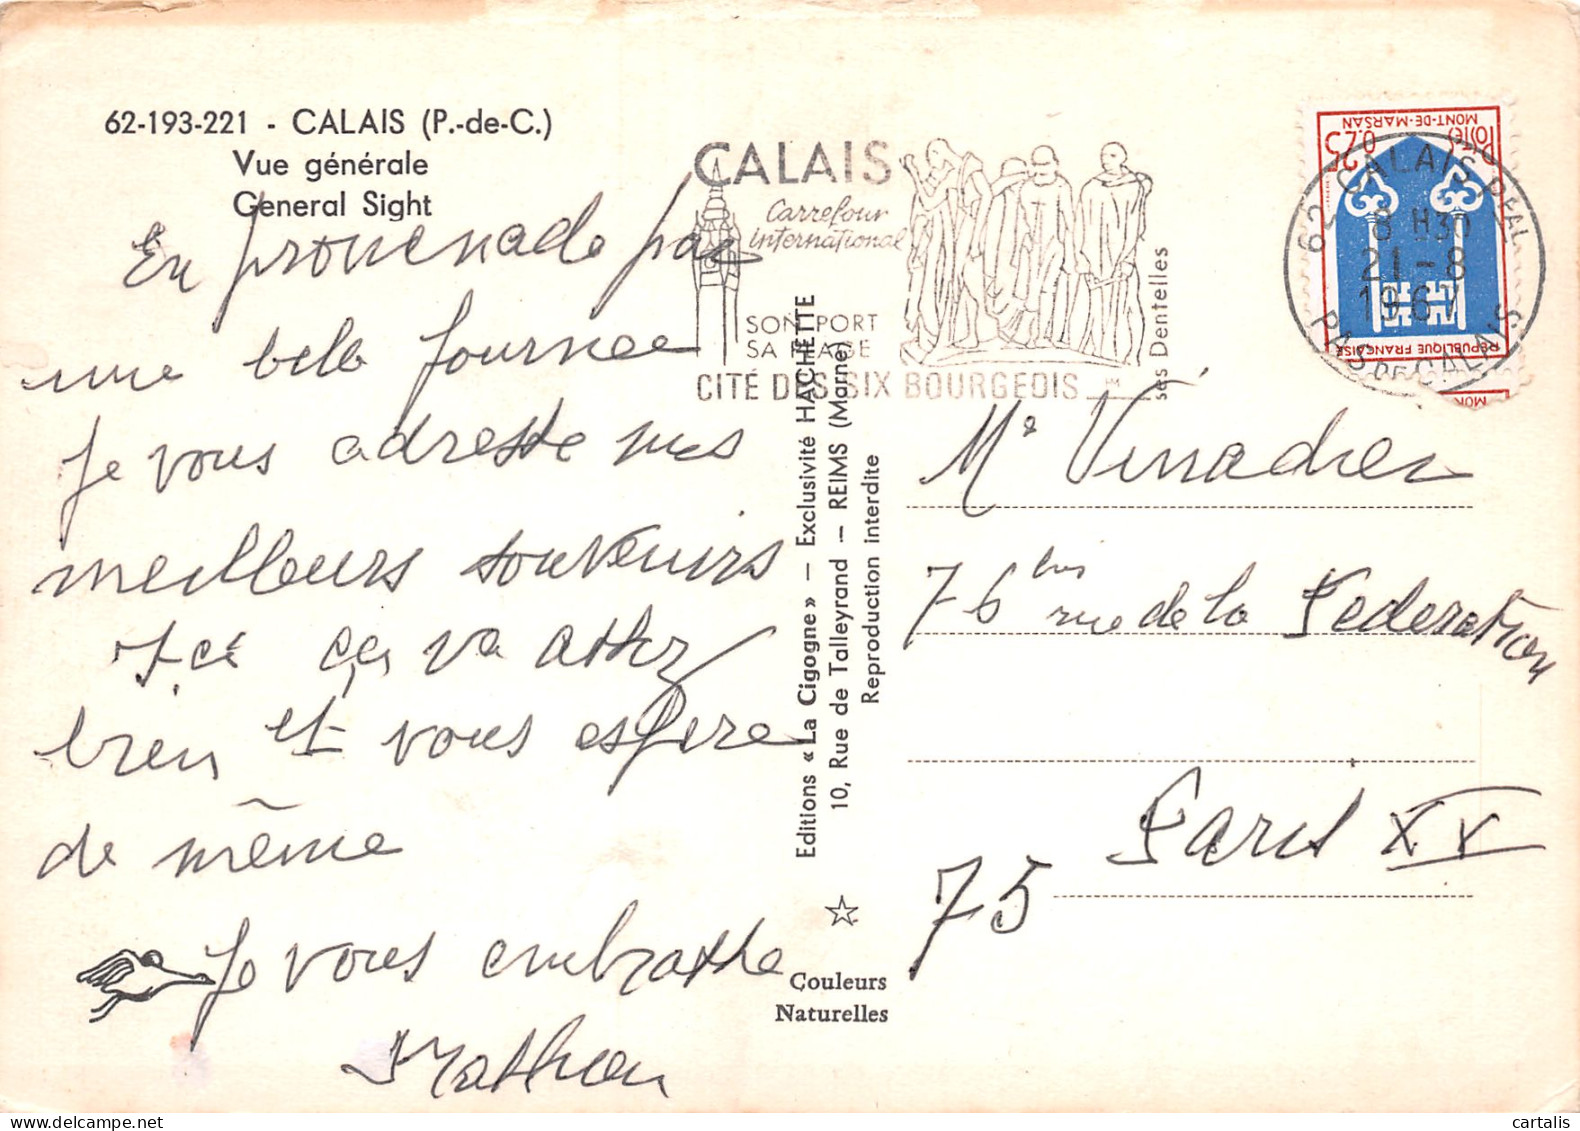 62-193-221 - CALAIS (P.-de-C.)
Vue générale
General Sight
En promenade par
une belle journee
Je vous adresse mes
meilleurs souvenirs
Ici ça va assez
bien et vous espere
de même
Je vous embrasse
CALAIS
Carrefour
international
SON PORT
SA PLAGE
ses Dentelles
CITÉ DES SIX BOURGEOIS
Editions « La Cigogne » — Exclusivité HACHETTE
10, Rue de Talleyrand — REIMS (Marne)
Reproduction interdite
Couleurs
Naturelles
MONT-DE-MARSAN
0,25 Postes
REPUBLIQUE FRANÇAISE
MON
62 CALAIS PPAL
8 H30
21-8
1967
PAS DE CALAIS
76 bis rue de la Federation
Paris XV
75
cartalis